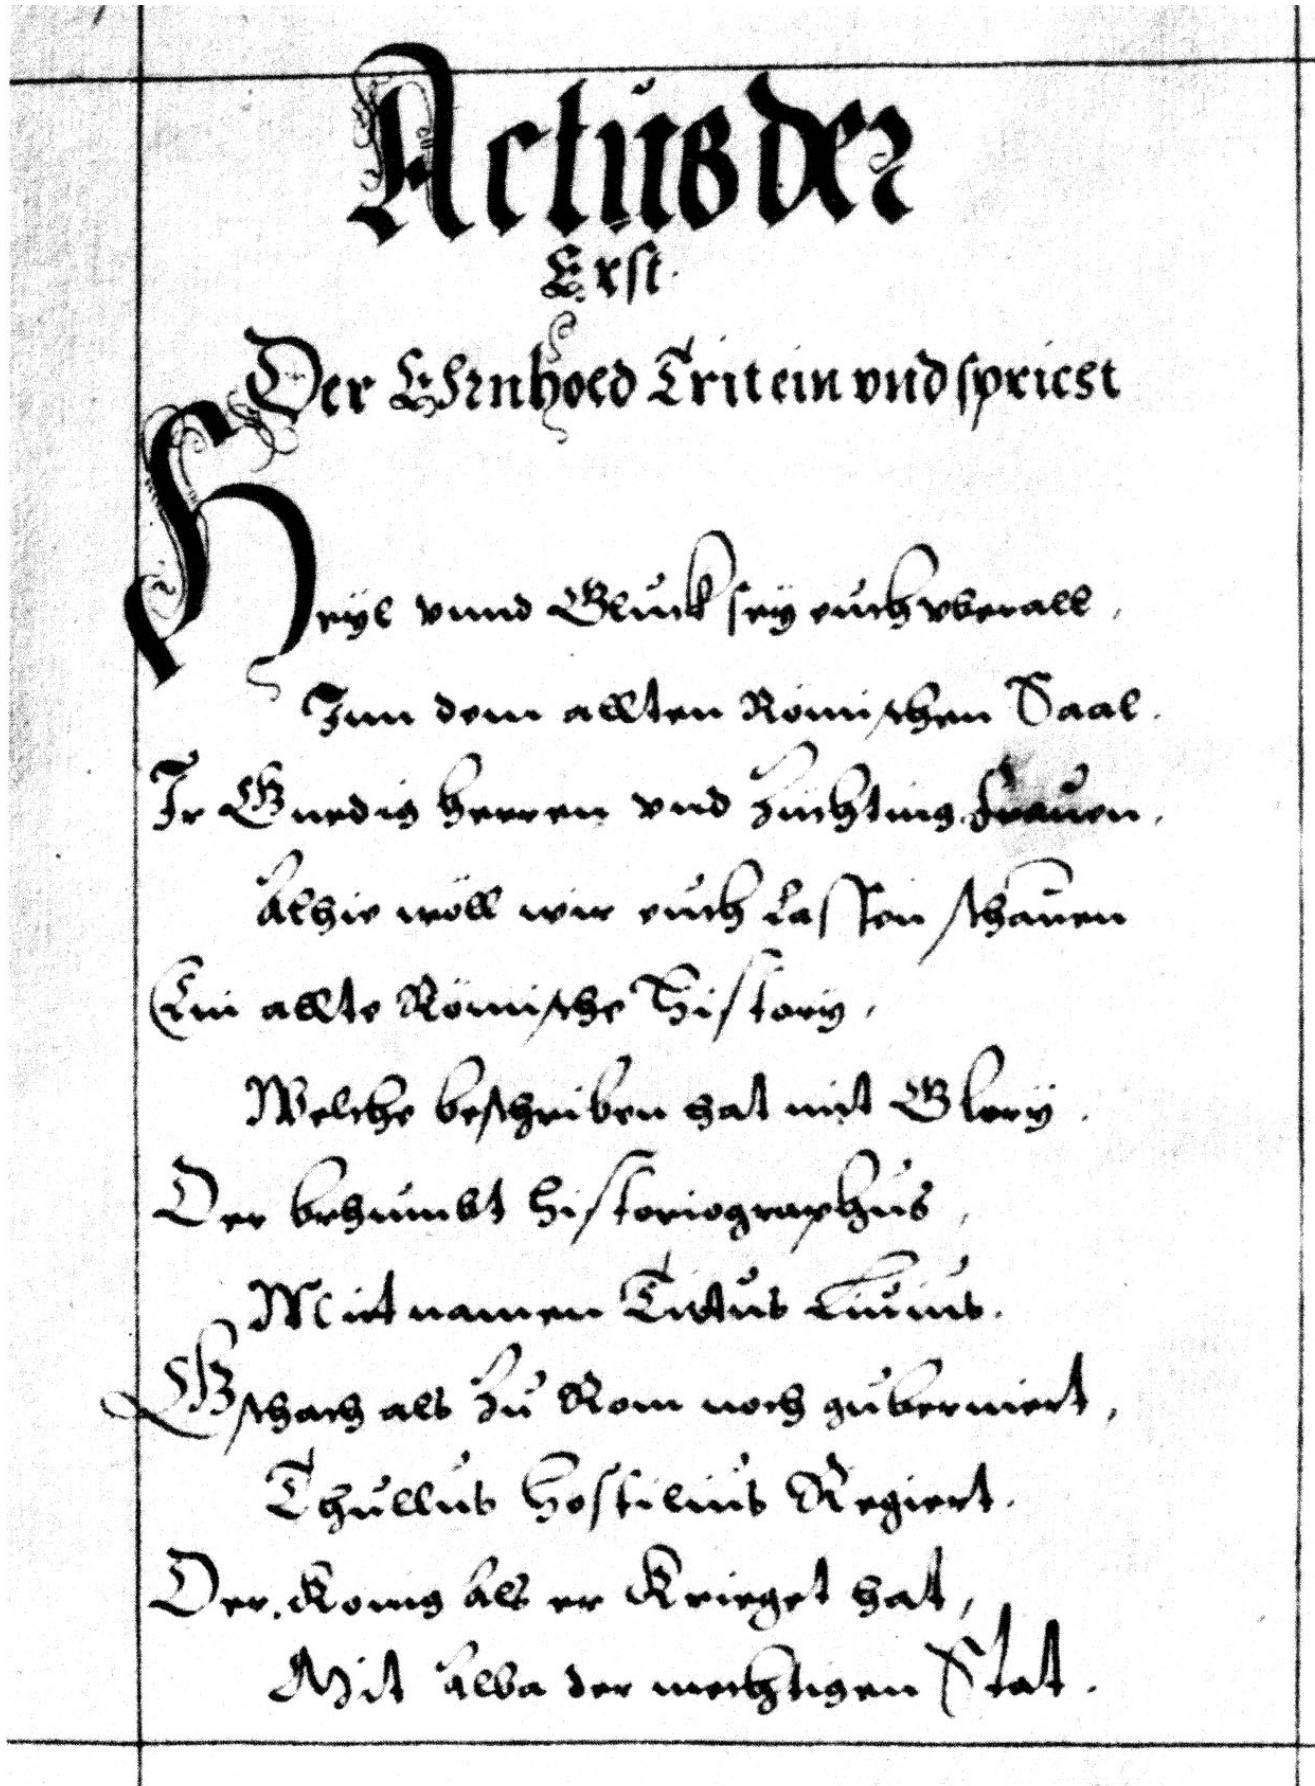 Actus der
Erst.
Der Ehrnhold Trit ein vnd spricht
Heyl vnnd Gluck sey euch vberall,
Inn dem allten Römischen Saal.
Ir Gnedig herren vnd züchting frauen,
Alhie wöll wir euch Lassen schauen
Ein allte Römische History,
Welche beschriben hat mit Glory.
Der brhumbt historiographus,
Mit namen Titus Liuius.
Gschach als zu Rom noch guberniert,
Thullus hostilius Regiert.
Der König Als er Krieget hat,
Mit Alba der mechtigen Stat.